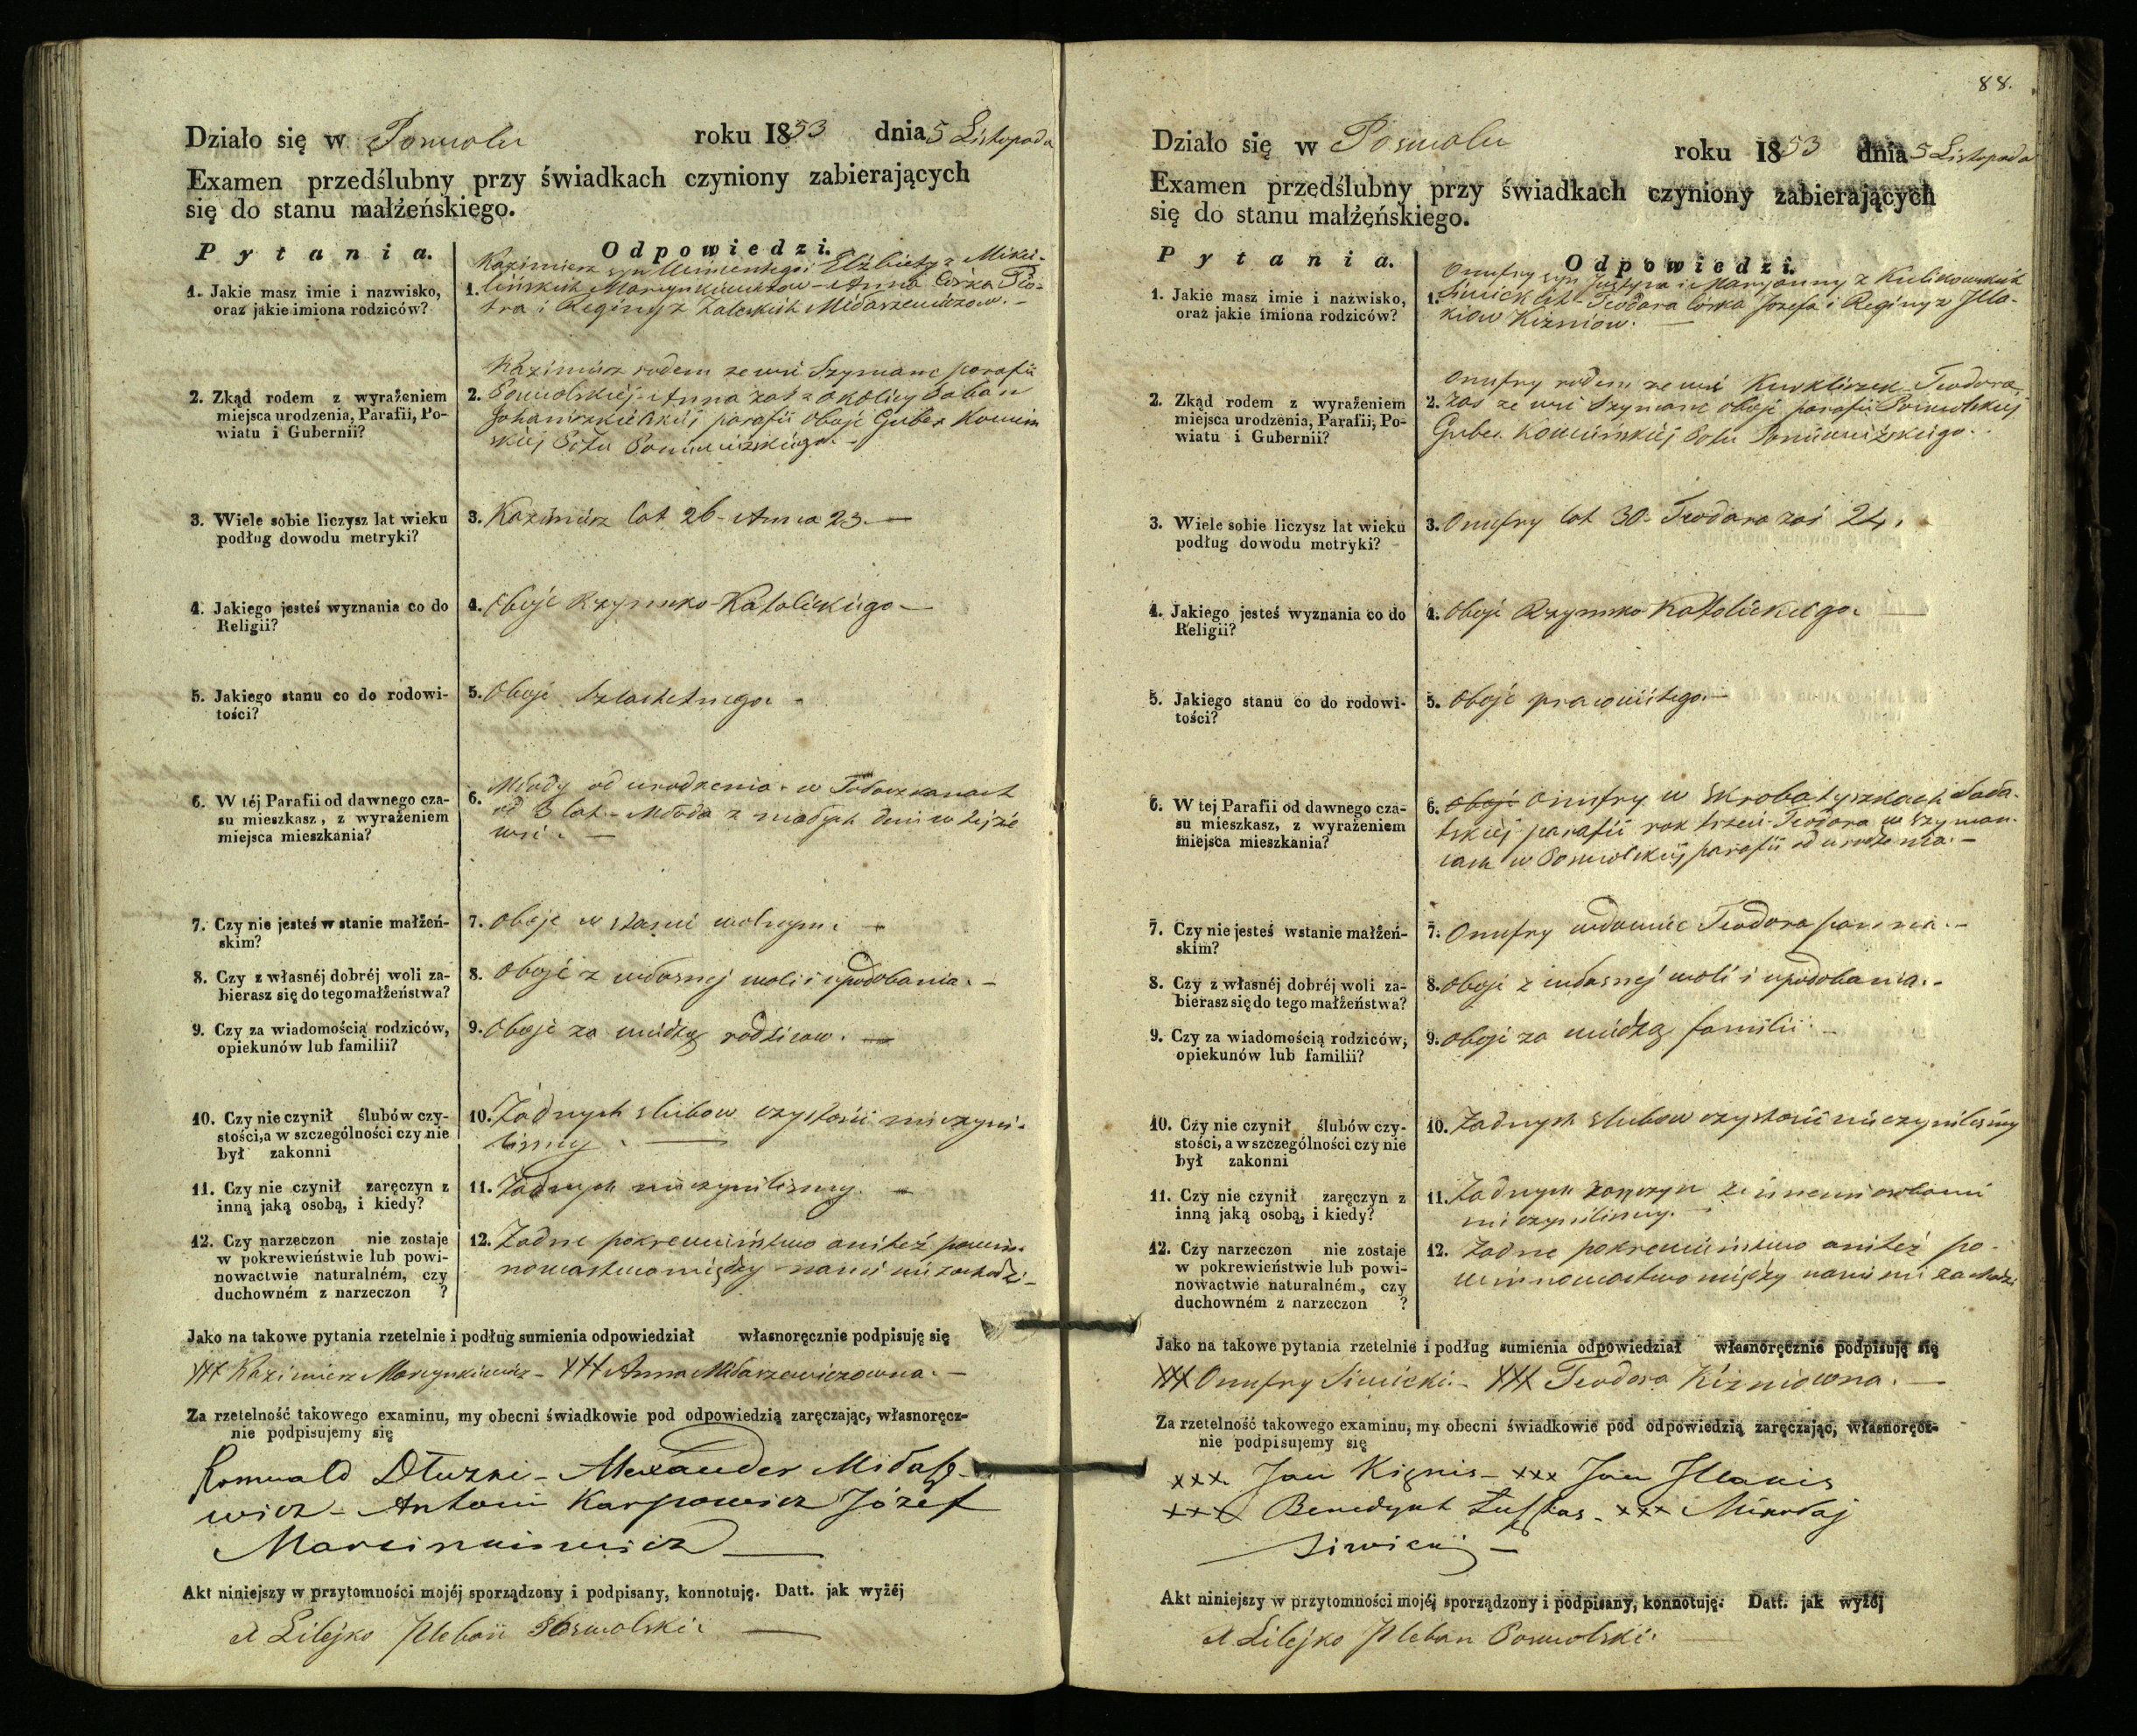 Działo się w Poswolu roku 1853 dnia 5 Listopada
Examen przedślubny przy świadkach czyniony zabierających
się do stanu małżeńskiego.
Pytania. Odpowiedzi.
1. Jakie masz imie i nazwisko,
oraz jakie imiona rodziców?
1. Kazimierz syn Elżbiety z Miki-
lińskich Marcynkiewiczow - Anna Córka Pio-
tra i Reginy z Zaleskich Midaszewiczow. -
2. Zkąd rodem z wyrażeniem
miejsca urodzenia, Parafii, Po-
wiatu i Gubernii?
Kazimierz rodem ze wsi Szymanc parafii
2. Poswolskiéj - Anna zaś z okolicy
Johaniszkielskiéj parafii oboje Guber Kowień
skiéj Pottu Poniewiezkiego. -
3. Wiele sobie liczysz lat wieku
podług dowodu metryki?
3. Kazimierz lat 26 - Anna 23. -
4. Jakiego jesteś wyznania co do
Religii?
4. Oboje Rzymsko-Katolickiego -
5. Jakiego stanu co do rodowi-
tości?
5. Oboje Szlachetnego. -
6. W téj Parafii od dawnego cza-
su mieszkasz, z wyrażeniem
miejsca mieszkania?
6. Młody od urodzenia - w
od 3 lat - Młoda z małych dni w tejże
wsi. -
7. Czy nie jesteś w stanie małżeń-
skim?
7. Oboje w stanie wolnym. -
8. Czy z własnéj dobréj woli za-
bierasz się do tego małżeństwa?
8. Oboje z własnej woli i upodobania. -
9. Czy za wiadomością rodziców,
opiekunów lub familii?
9. Oboje za wiedzą rodzicow. -
10. Czy nie czynił ślubów czy-
stości, a w szczególności czy nie
był zakonni
10. Żadnych slubow czystosci nie czyni-
lismy. -
11. Czy nie czynił zaręczyn z
inną jaką osobą, i kiedy?
11. Żadnych nie czynilismy. -
12. Czy narzeczon nie zostaje
w pokrewieństwie lub powi-
nowactwie naturalném, czy
duchowném z narzeczon ?
12. Żadne pokrewieństwo aniteż powi-
nowactwo między nami nie zachodzi -
Jako na takowe pytania rzetelnie i podług sumienia odpowiedział własnoręcznie podpisuję się
XXX Kazimierz Marcynkiewicz - XXX Anna Midaszewiczowna. -
Za rzetelność takowego examinu, my obecni świadkowie pod odpowiedzią zaręczając, własnoręcz-
nie podpisujemy się
Romuald Dłuski - Alexander Midasze-
wicz - Antoni Karpowicz Józef
Marcinkiewicz -
Akt niniejszy w przytomności mojéj sporządzony i podpisany, konnotuję. Datt. jak wyżéj
A Lilejko Pleban Poswolski. -
88.
Działo się w Poswolu roku 1853 dnia 5 Listopada
Examen przedślubny przy świadkach czyniony zabierających
się do stanu małżeńskiego.
Pytania. Odpowiedzi.
1. Jakie masz imie i nazwisko,
oraz jakie imiona rodziców?
1. Onufry syn Justyna i Maryanny z Kulikowskich
Siwickich - Teodora Córka Józefa i Reginy z Illa-
kiow Kizniow. -
2. Zkąd rodem z wyrażeniem
miejsca urodzenia, Parafii, Po-
wiatu i Gubernii?
Onufry rodem ze wsi Teodora
2. zaś ze wsi Szymanc oboje parafii Poswolskiej
Guber. Kowieńskiéj Pottu Poniewiezkiego.
3. Wiele sobie liczysz lat wieku
podług dowodu metryki?
3. Onufry lat 30 - Teodora zaś 24.
4. Jakiego jesteś wyznania co do
Religii?
4. Oboje Rzymsko Katolickiego. -
5. Jakiego stanu co do rodowi-
tości?
5. Oboje prawnitego. -
6. W tej Parafii od dawnego cza-
su mieszkasz, z wyrażeniem
miejsca mieszkania?
6. Oboje Onufry w Skrobatyszkach Sala-
tskiéj parafii rok trzeci Teodora w Szyman-
cach w Poswolskiej parafii od urodzenia. -
7. Czy nie jesteś wstanie małżeń-
skim?
7. Onufry wdowiec Teodora panna. -
8. Czy z własnéj dobréj woli za-
bierasz się do tego małżeństwa?
8. Oboje z własnej woli i upodobania. -
9. Czy za wiadomością rodziców,
opiekunów lub familii?
9. Oboje za wiedzą familii. -
10. Czy nie czynił ślubów czy-
stości, a w szczególności czy nie
był zakonni
10. Żadnych slubow czystosci nie czynilismy
11. Czy nie czynił zaręczyn z
inną jaką osobą, i kiedy?
11. Żadnych zaręczyn z innemi osobami
nie czynilismy. -
12. Czy narzeczon nie zostaje
w pokrewieństwie lub powi-
nowactwie naturalném, czy
duchowném z narzeczon ?
12. Żadne pokrewieństwo aniteż po-
winnowactwo między nami nie zachodzi
Jako na takowe pytania rzetelnie i podług sumienia odpowiedział własnoręcznie podpisuję się
XXX Onufry Siwicki. - XXX Teodora Kizniowna. -
Za rzetelność takowego examinu, my obecni świadkowie pod odpowiedzią zaręczając, własnoręcz-
nie podpisujemy się
xxx Jan Kiznis - xxx Jan Illakis
xxx Benedykt - xxx Mikołaj
Siwicki -
Akt niniejszy w przytomności mojéj sporządzony i podpisany, konnotuję. Datt. jak wyżéj
A Lilejko Pleban Poswolski. -